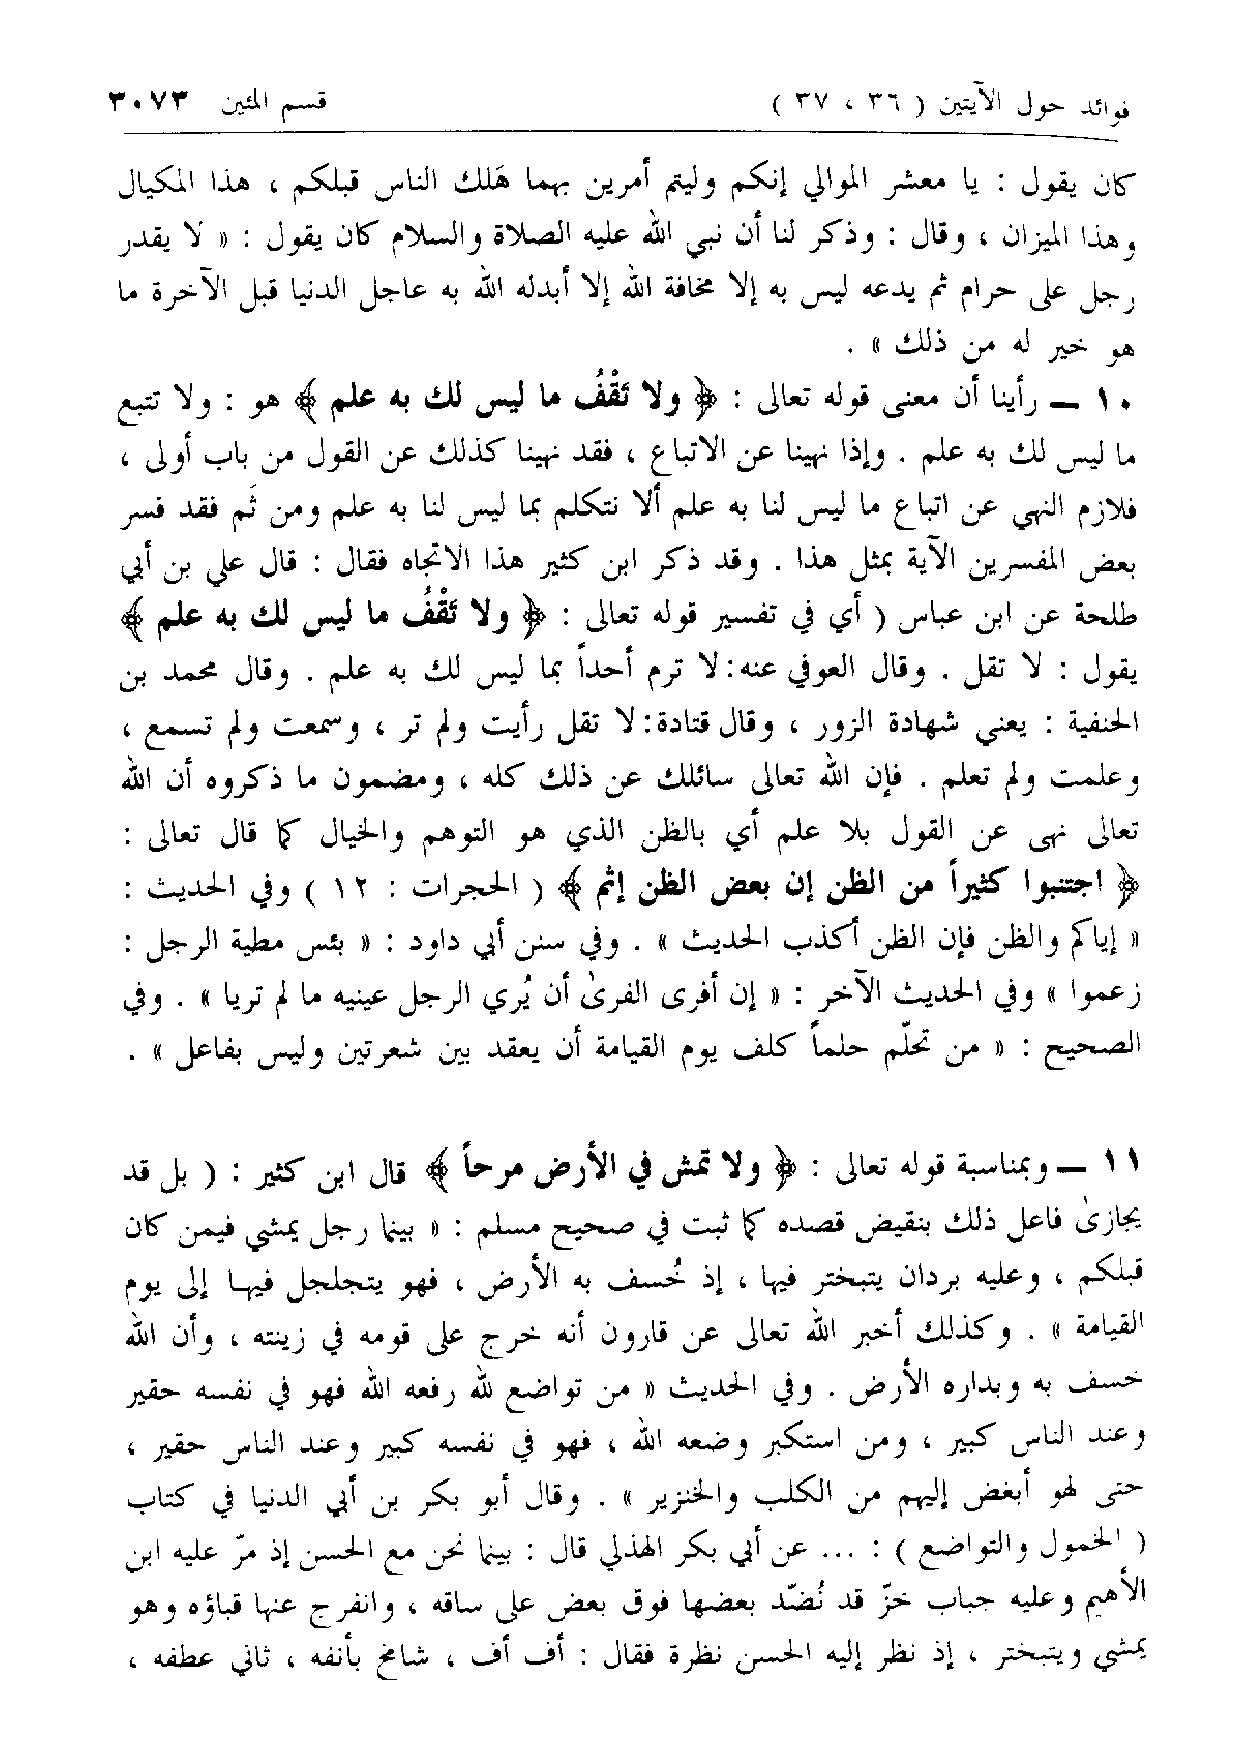 فوائد حول الآيتين ( ٣٦ ، ٣٧ ) قسم المئين ٣٠٧٣
كان يقول : يا معشر الموالي إنكم وليتم أمرين بهما هَلك الناس قبلكم ، هذا المكيال
وهذا الميزان ، وقال : وذكر لنا أن نبي الله عليه الصلاة والسلام كان يقول : « لا يقدر
رجل على حرام ثم يدعه ليس به إلا مخافة الله إلا أبدله الله به عاجل الدنيا قبل الآخرة ما
هو خير له من ذلك » .
١٠ ــ رأينا أن معنى قوله تعالى : ﴿ ولا تَقْفُ ما ليس لك به علم ﴾ هو : ولا تتبع
ما ليس لك به علم . وإذا نهينا عن الاتباع ، فقد نهينا كذلك عن القول من باب أولى ،
فلازم النهي عن اتباع ما ليس لنا به علم ألا نتكلم بما ليس لنا به علم ومن ثَم فقد فسر
بعض المفسرين الآية بمثل هذا . وقد ذكر ابن كثير هذا الاتجاه فقال : قال علي بن أبي
طلحة عن ابن عباس ( أي في تفسير قوله تعالى : ﴿ ولا تَقْفُ ما ليس لك به علم ﴾
يقول : لا تقل . وقال العوفي عنه: لا ترم أحداً بما ليس لك به علم . وقال محمد بن
الحنفية : يعني شهادة الزور ، وقال قتادة: لا تقل رأيت ولم تر ، وسمعت ولم تسمع ،
وعلمت ولم تعلم . فإن الله تعالى سائلك عن ذلك كله ، ومضمون ما ذكروه أن الله
تعالى نهى عن القول بلا علم أي بالظن الذي هو التوهم والخيال كما قال تعالى :
﴿ اجتنبوا كثيراً من الظن إن بعض الظن إثم ﴾ ( الحجرات : ١٢ ) وفي الحديث :
« إياكم والظن فإن الظن أكذب الحديث » . وفي سنن أبي داود : « بئس مطية الرجل :
زعموا » وفي الحديث الآخر : « إن أفرى الفرى أن يُري الرجل عينيه ما لم تريا » . وفي
الصحيح : « من تحلّم حلماً كلف يوم القيامة أن يعقد بين شعرتين وليس بفاعل » .
١١ ــ وبمناسبة قوله تعالى : ﴿ ولا تمش في الأرض مرحاً ﴾ قال ابن كثير : ( بل قد
يجازى فاعل ذلك بنقيض قصده كما ثبت في صحيح مسلم : « بينما رجل يمشي فيمن كان
قبلكم ، وعليه بردان يتبختر فيها ، إذ خُسف به الأرض ، فهو يتجلجل فيها إلى يوم
القيامة » . وكذلك أخبر الله تعالى عن قارون أنه خرج على قومه في زينته ، وأن الله
خسف به وبداره الأرض . وفي الحديث « من تواضع لله رفعه الله فهو في نفسه حقير
وعند الناس كبير ، ومن استكبر وضعه الله ، فهو في نفسه كبير وعند الناس حقير ،
حتى لهو أبغض إليهم من الكلب والخنزير » . وقال أبو بكر بن أبي الدنيا في كتاب
( الخمول والتواضع ) : ... عن أبي بكر الهذلي قال : بينما نحن مع الحسن إذ مرّ عليه ابن
الأهيم وعليه جباب خزّ قد نُضّد بعضها فوق بعض على ساقه ، وانفرج عنها قباؤه وهو
يمشي ويتبختر ، إذ نظر إليه الحسن نظرة فقال : أف أف ، شامخ بأنفه ، ثاني عطفه ،